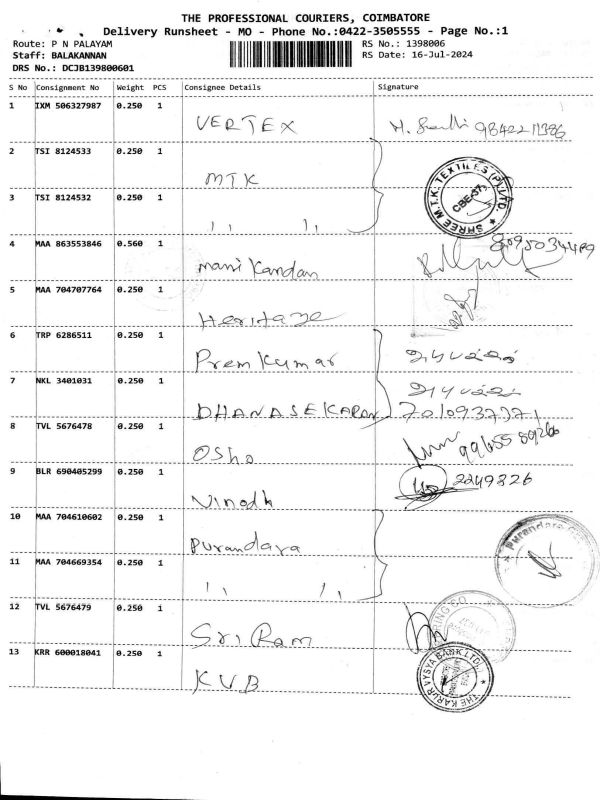 THE PROFESSIONAL COURIERS, COIMBATORE
Delivery Runsheet - MO - Phone No.:0422-3505555 - Page No.:1
Route: P N PALAYAM RS No.: 1398006
Staff: BALAKANNAN RS Date: 16-Jul-2024
DRS No.: DCJB139800601
S No Consignment No Weight PCS Consignee Details Signature
1 IXM 506327987 0.250 1
VERTEX
2 TSI 8124533 0.250 1
MTK
SHREE M.T.K. TEXTILES (P) LTD.
CBE-37
3 TSI 8124532 0.250 1
,, ,,
4 MAA 863553846 0.560 1
mani Kandan
5 MAA 704707764 0.250 1
Heritage
6 TRP 6286511 0.250 1
Prem Kumar
7 NKL 3401031 0.250 1
DHANASEKARAN
8 TVL 5676478 0.250 1
Osho
9 BLR 690405299 0.250 1
Vinodh 2249826
10 MAA 704610602 0.250 1
Purandara
11 MAA 704669354 0.250 1
,, ,,
12 TVL 5676479 0.250 1
Sri Ram
13 KRR 600018041 0.250 1
KVB
THE KARUR VYSYA BANK LTD.